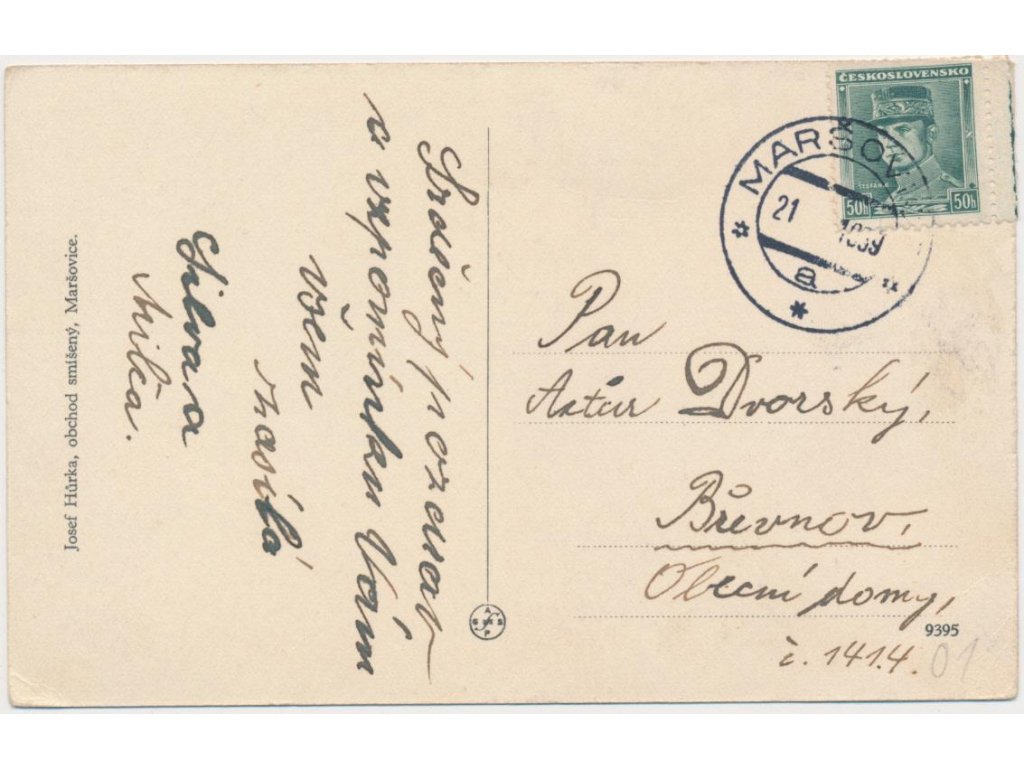 Josef Hůrka, obchod smíšený, Maršovice.
Srdečný pozdrav
a vzpomínku Vám
všem
zasílá
Silva a
Milča.
ČESKOSLOVENSKO
ŠTEFÁNIK
50h 50h
MARŠOV
21 1939
a
Pan
Artur Dvorský,
Břevnov,
Obecní domy,
č. 1414.
9395
01